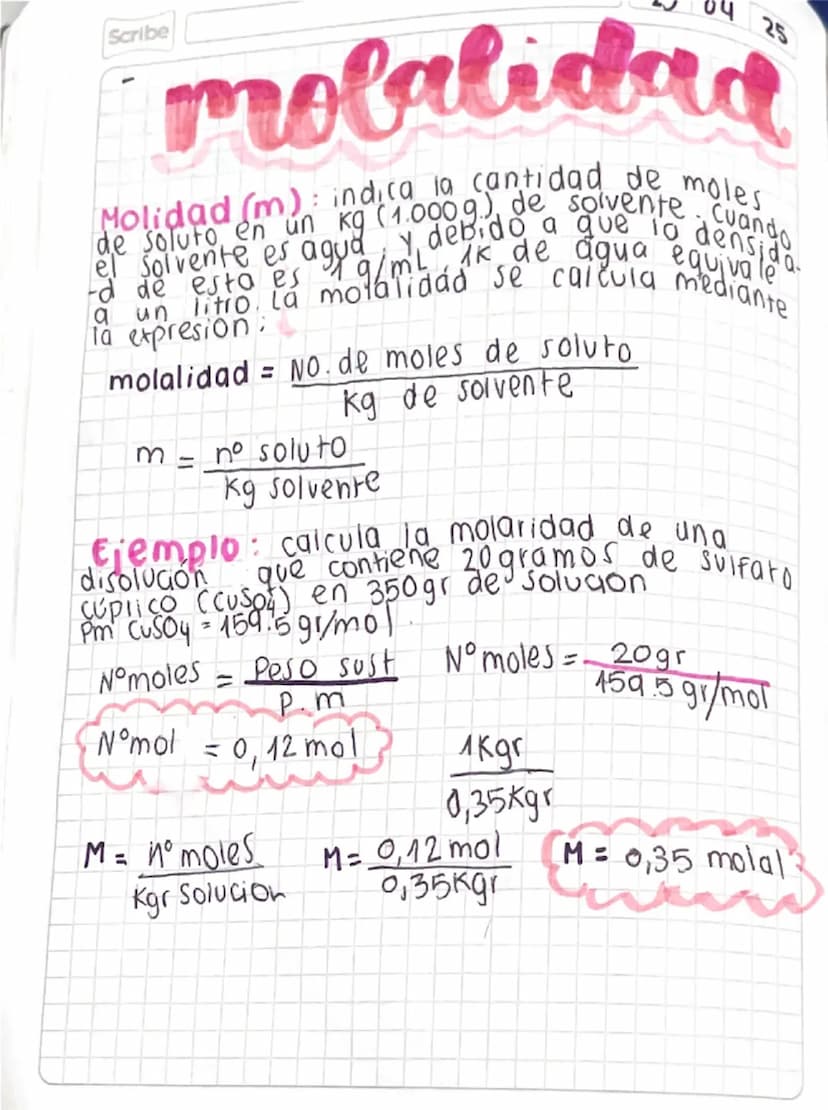 Scribe
04 25
molalidad
Molidad (m): indica la cantidad de moles
de soluto en un Kg (1.000g.) de solvente. cuando
el solvente es agua, y debido a que la densida-
-d de esta es 1 g/mL 1K de agua equivale
a un litro. La molalidad se calcula mediante
la expresion:
molalidad = NO. de moles de soluto
Kg de solvente
m = nº soluto
Kg solvente
Ejemplo: calcula la molaridad de una
disolución que contiene 20gramos de sulfato
cúplico (CuSO4) en 350gr de solucion
Pm CuSO4 = 159.5 gr/mol.
Nºmoles = Peso sust
P.m
Nºmoles = 20gr
159.5 gr/mol
Nºmol = 0,12 mol
1Kgr
0,35Kgr
M = nº moles
Kgr solucion
M = 0,12 mol
0,35Kgr
M = 0,35 molal